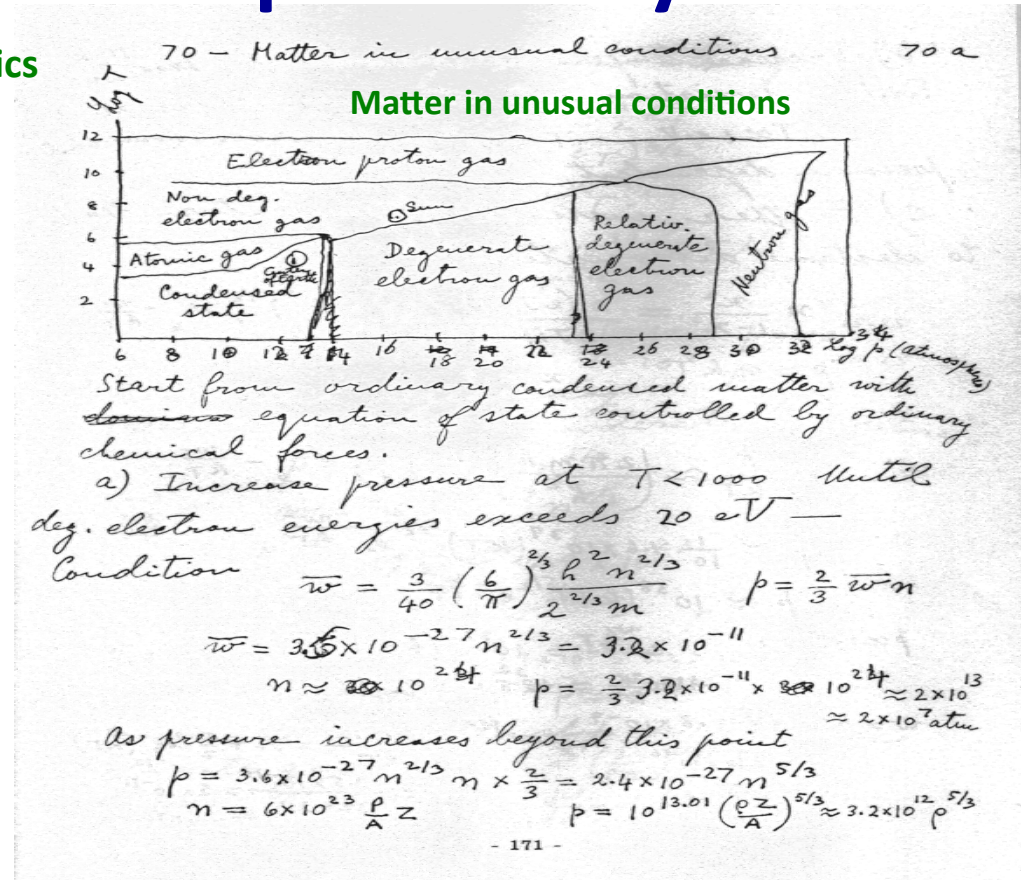 ics
70 - Matter in unusual conditions 70 a
Matter in unusual conditions
Log T
12
Electron proton gas
10
Non deg.
8
electron gas
Sun
Relativ.
degenerate
electron
gas
Neutron gas
6
Atomic gas
Degenerate
electron gas
4
Condensed
state
2
6 8 10 12 14 16 18 20 22 24 26 28 30 32 34 Log p (atmospheres)
Start from ordinary condensed matter with
equation of state controlled by ordinary
chemical forces.
a) Increase pressure at T<1000 Until
deg. electron energies exceeds 20 eV —
Condition w̅ = 3/40 (6/π)^2/3 h^2 n^2/3 / 2^2/3 m p = 2/3 w̅ n
w̅ = 3.6 × 10^-27 n^2/3 = 3.2 × 10^-11
n ≈ 10^24 p = 2/3 3.2×10^-11 × 10^24 ≈ 2×10^13
≈ 2×10^7 atm
As pressure increases beyond this point
p = 3.6×10^-27 n^2/3 n × 2/3 = 2.4×10^-27 n^5/3
n = 6×10^23 ρ/A Z p = 10^13.01 (ρZ/A)^5/3 ≈ 3.2×10^12 ρ^5/3
- 171 -